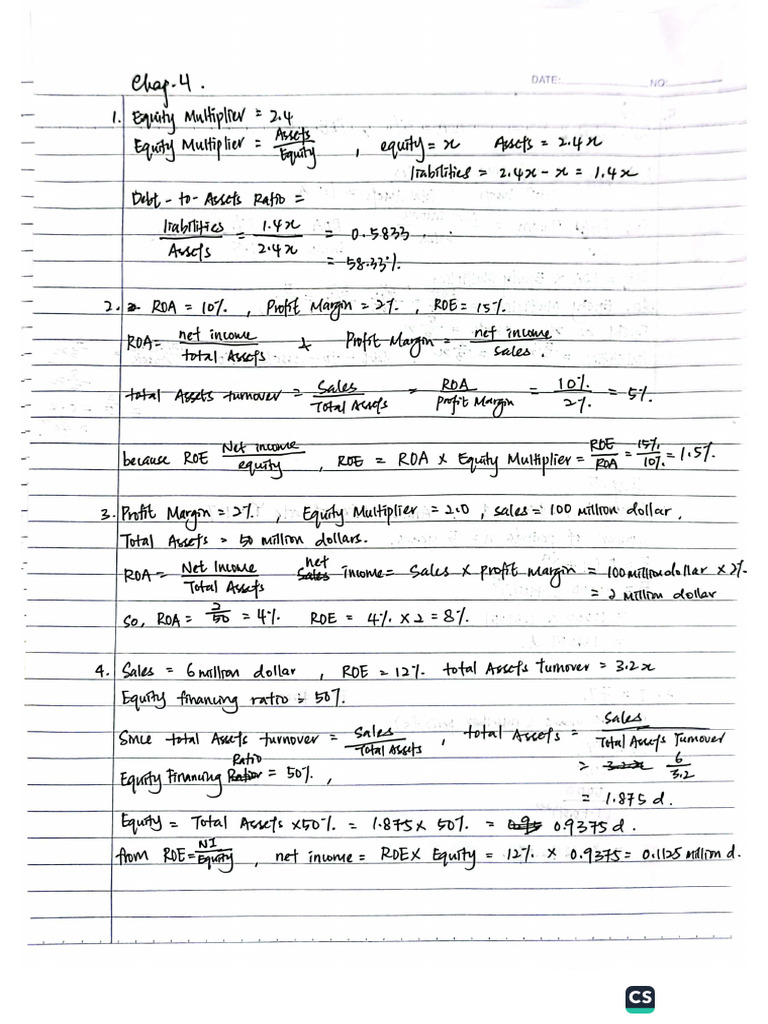 DATE:
NO:
Chap. 4.
1. Equity Multiplier = 2.4
Equity Multiplier = Assets / Equity , equity = x Assets = 2.4x
liabilities = 2.4x - x = 1.4x
Debt-to-Assets Ratio =
liabilities / Assets = 1.4x / 2.4x = 0.5833...
= 58.33%.
2. ROA = 10%. , Profit Margin = 2%. , ROE = 15%.
ROA = net income / total Assets & Profit Margin = net income / sales.
total Assets turnover = Sales / Total Assets = ROA / Profit Margin = 10%. / 2%. = 5%.
because ROE Net income / equity , ROE = ROA × Equity Multiplier = ROE / ROA = 15%. / 10%. = 1.5%.
3. Profit Margin = 2%. , Equity Multiplier = 2.0 , sales = 100 million dollar.
Total Assets = 50 million dollars.
ROA = Net Income / Total Assets net income = Sales × profit margin = 100 million dollar × 2%.
= 2 million dollar
so, ROA = 2 / 50 = 4%. ROE = 4%. × 2 = 8%.
4. Sales = 6 million dollar , ROE = 12%. total Assets turnover = 3.2x
Equity financing ratio = 50%.
Since total Assets turnover = Sales / Total Assets , total Assets = Sales / Total Assets Turnover
= 6 / 3.2
Equity Financing Ratio = 50%. ,
= 1.875 d.
Equity = Total Assets × 50%. = 1.875 × 50%. = 0.9375 d.
from ROE = NI / Equity , net income = ROE × Equity = 12%. × 0.9375 = 0.1125 million d.
CS